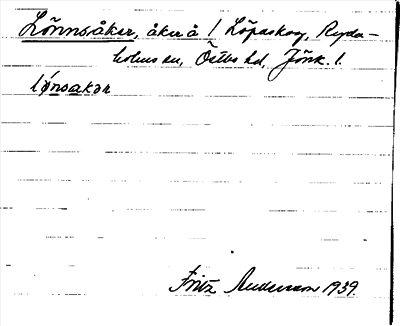 Lönnsåker, åker å 1 Löpaskog, Ryda-
holms sn, Östbo hd, Jönk. l.
lǿnsakər
Fritz Andersson 1939.